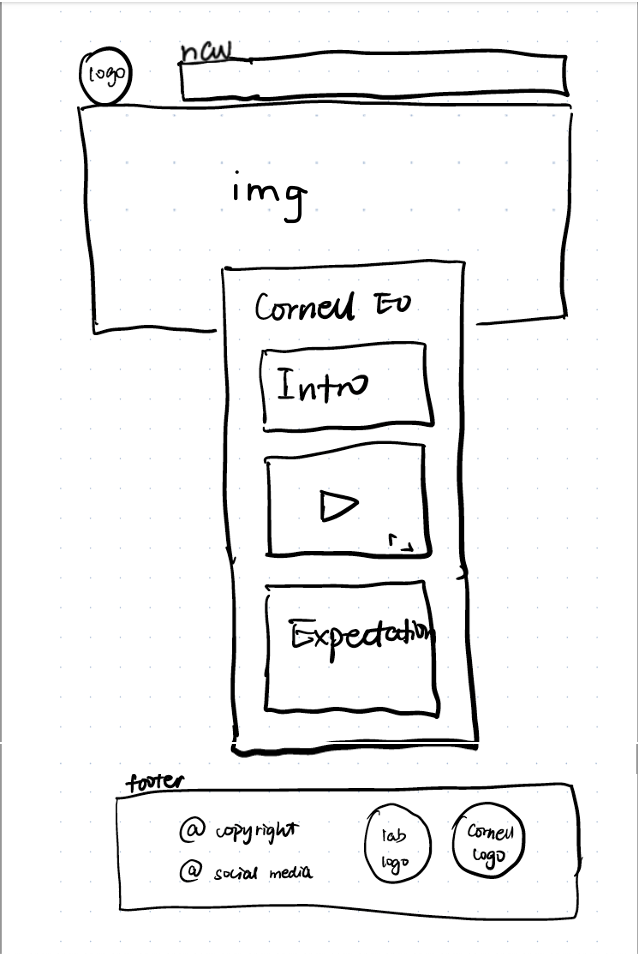 nav
logo
img
Cornell EO
Intro
Expectation
footer
@ copyright
@ social media
lab
logo
Cornell
Logo